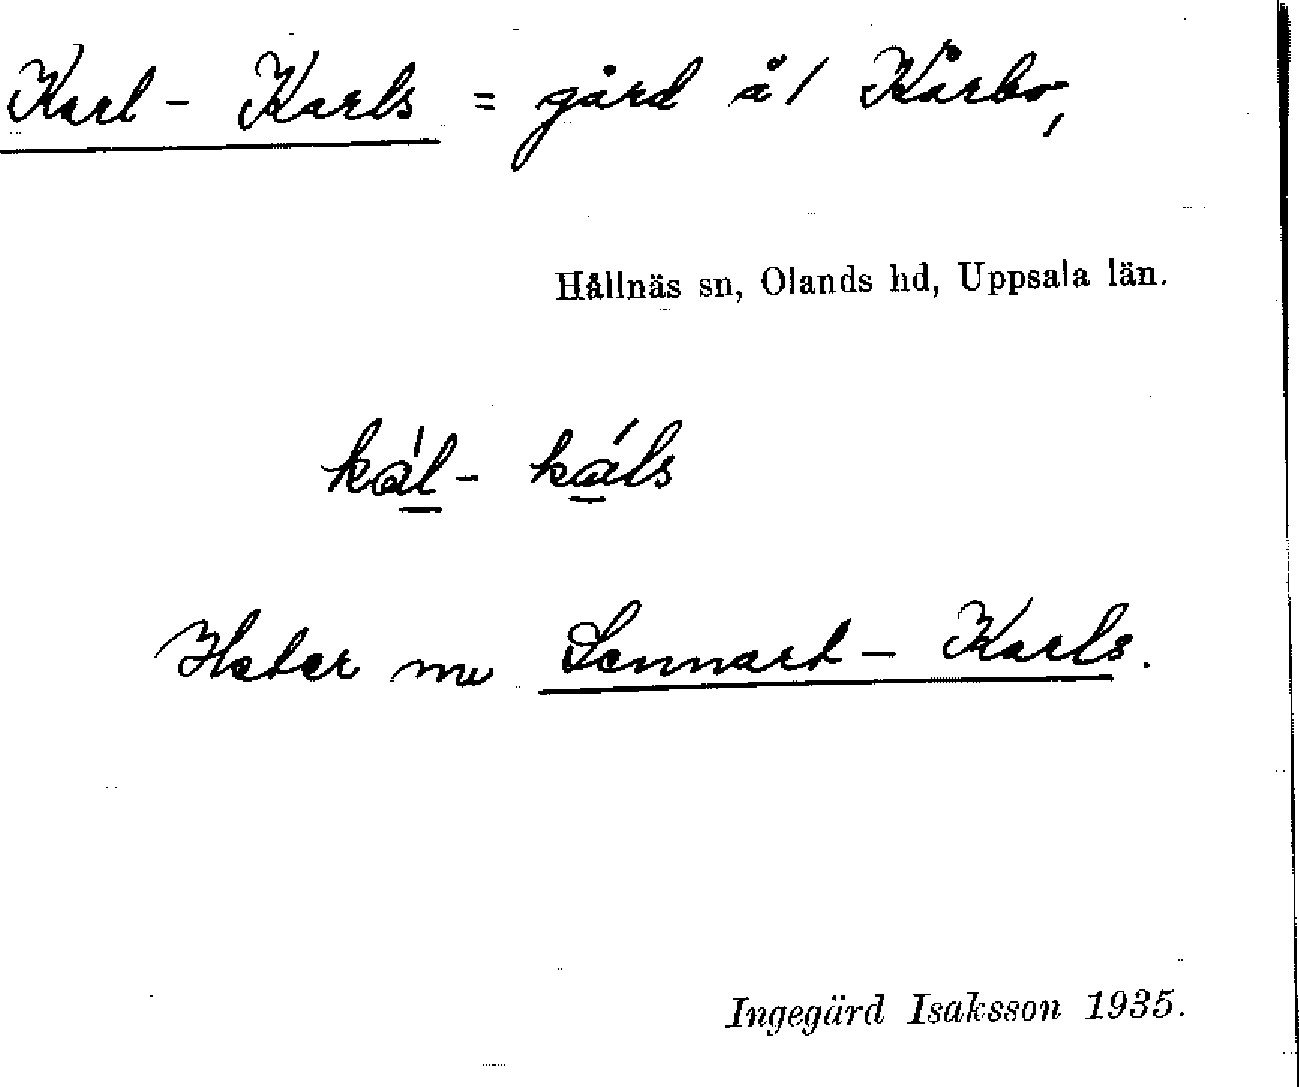 Karl - Karls = gård å 1 Kårbo,
Hållnäs sn, Olands hd, Uppsala län.
kal - káls
Heter nu Lennart - Karls.
Ingegärd Isaksson 1935.